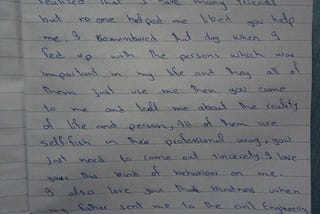 realized that I have many friends
but no one helped me liked you help
me. I remembered that day when I
fed up with the persons which was
important in my life and they all of
them just use me then you come
to me and tell me about the reality
of life and person, All of them are
selfish in their professional way, you
just need to come out sincerely. I love
your this kind of behaviour on me.
I also love your kindness when
my father sent me to the civil Engineering